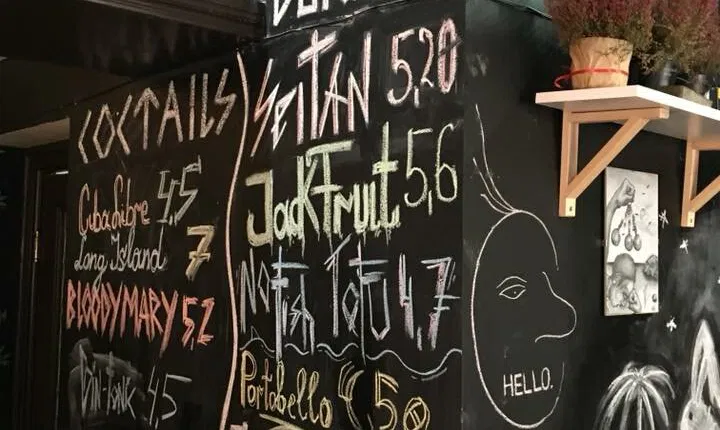 COCTAILS
Cuba Libre 4,5
Long Island 7
BLOODYMARY 5,2
Gin-Tonic 4,5
SEITAN 5,20
JackFruit 5,6
NoFish TOFU 4,7
Portobello 4,50
HELLO.